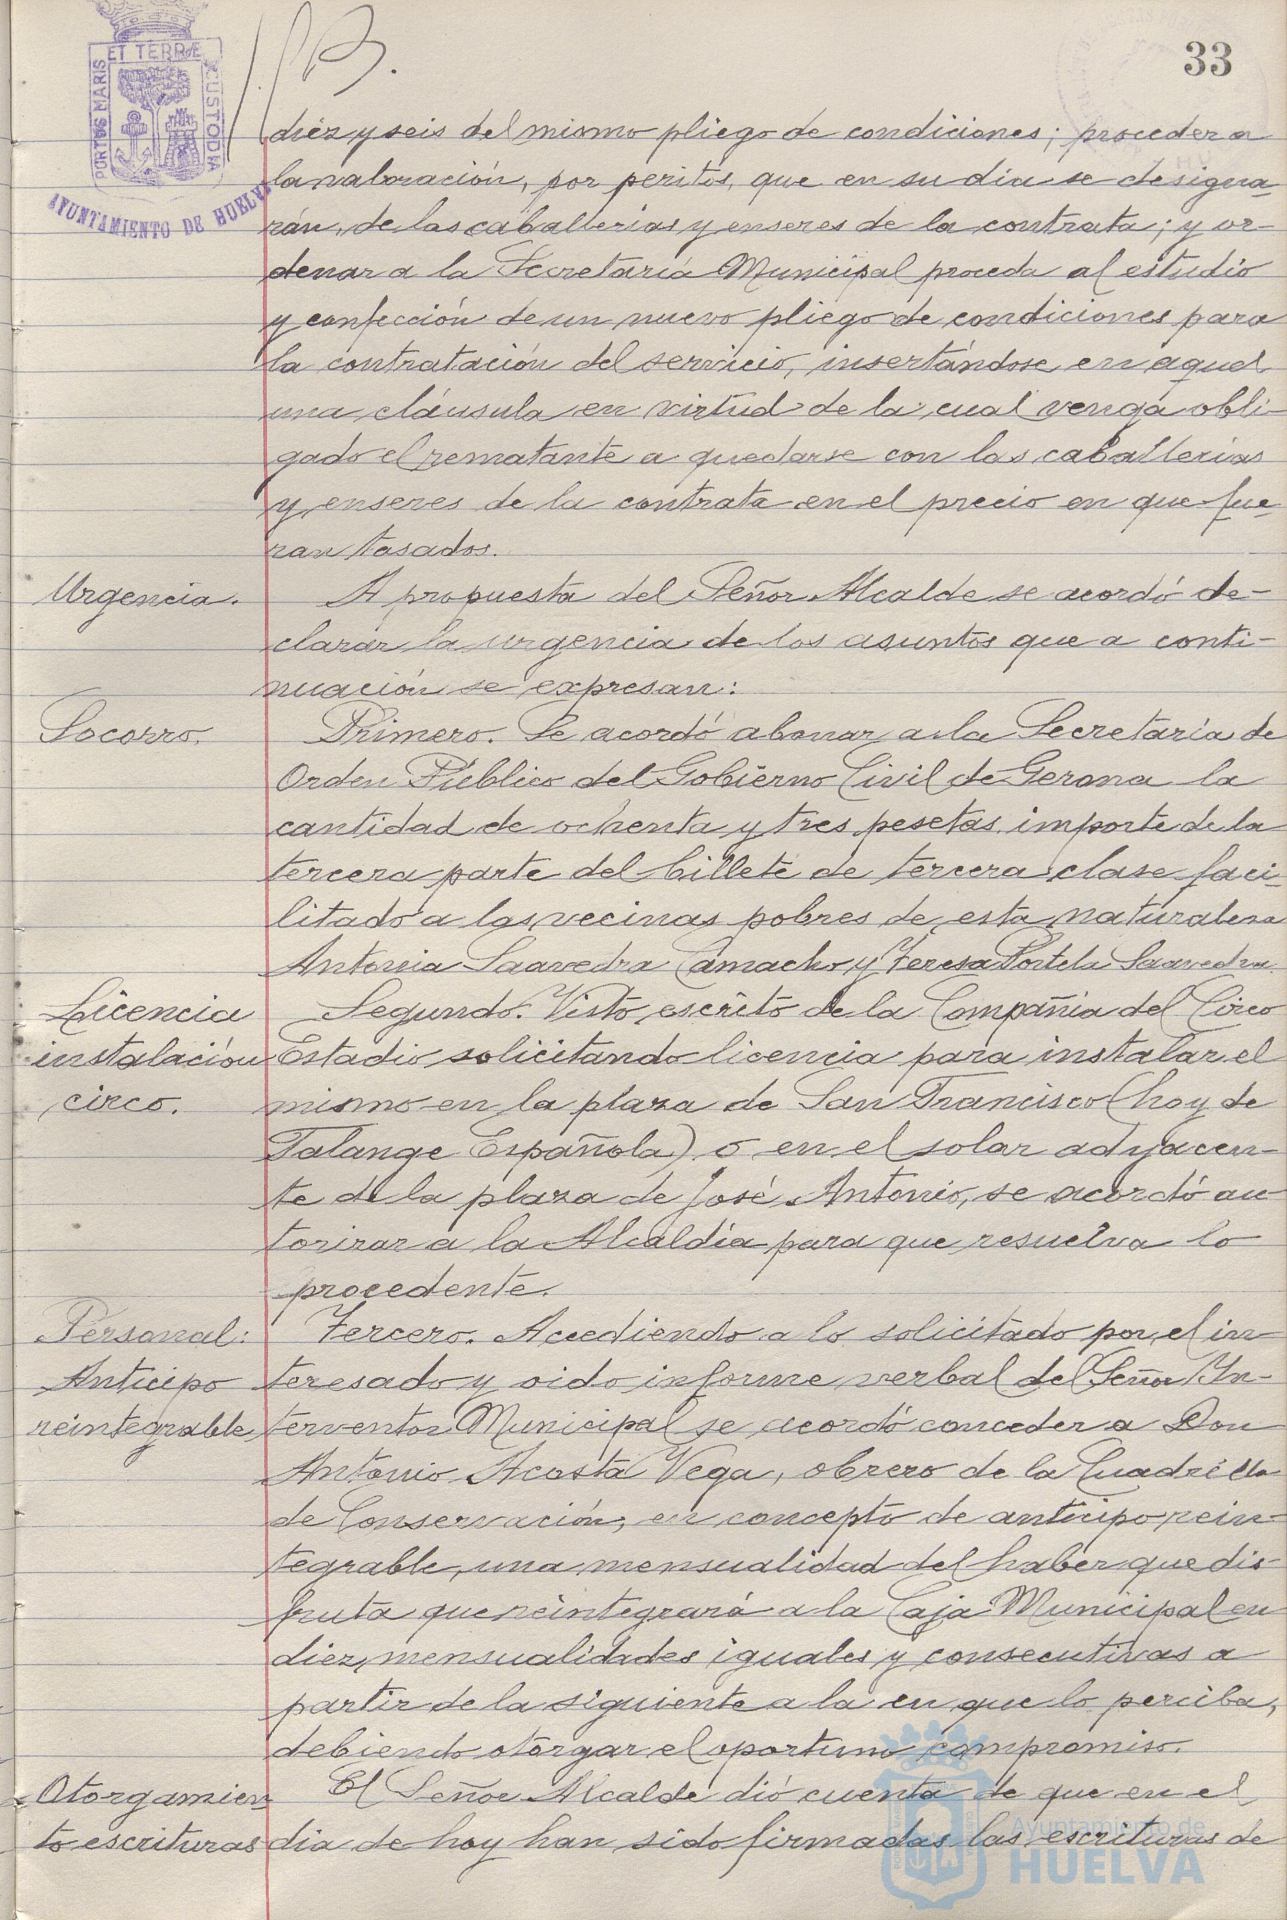 33
PORTUS MARIS ET TERRÆ CUSTODIA
AYUNTAMIENTO DE HUELVA
diez y seis del mismo pliego de condiciones; proceder a
la valoración, por peritos, que en su dia se designa-
rán, de las caballerias y enseres de la contrata; y or-
denar a la Secretaría Municipal proceda al estudio
y confección de un nuevo pliego de condiciones para
la contratación del servicio, insertándose en aquel
una cláusula en virtud de la cual venga obli-
gado el rematante a quedarse con las caballerias
y enseres de la contrata en el precio en que fue-
ran tasados.
Urgencia. A propuesta del Señor Alcalde se acordó de-
clarar la urgencia de los asuntos que a conti-
nuación se expresan:
Socorro. Primero. Se acordó abonar a la Secretaría de
Orden Público del Gobierno Civil de Gerona la
cantidad de ochenta y tres pesetas importe de la
tercera parte del billete de tercera clase faci-
litado a las vecinas pobres de esta naturaleza
Antonia Saavedra Camacho y Teresa Portela Saavedra.
Licencia Segundo. Visto escrito de la Compañia del Circo
instalación Estadio solicitando licencia para instalar el
circo. mismo en la plaza de San Francisco (hoy de
Falange Española) o en el solar adyacen-
te de la plaza de José Antonio, se acordó au-
torizar a la Alcaldía para que resuelva lo
procedente.
Personal: Tercero. Accediendo a lo solicitado por el in-
Anticipo teresado y oido informe verbal del Señor In-
reintegrable terventor Municipal se acordó conceder a Don
Antonio Acosta Vega, obrero de la Cuadrilla
de Conservación, en concepto de anticipo rein-
tegrable, una mensualidad del haber que dis-
fruta que reintegrará a la Caja Municipal en
diez mensualidades iguales y consecutivas a
partir de la siguiente a la en que lo perciba,
debiendo otorgar el oportuno compromiso.
Otorgamien- El Señor Alcalde dió cuenta de que en el
to escrituras dia de hoy han sido firmadas las escrituras de
Ayuntamiento de
HUELVA